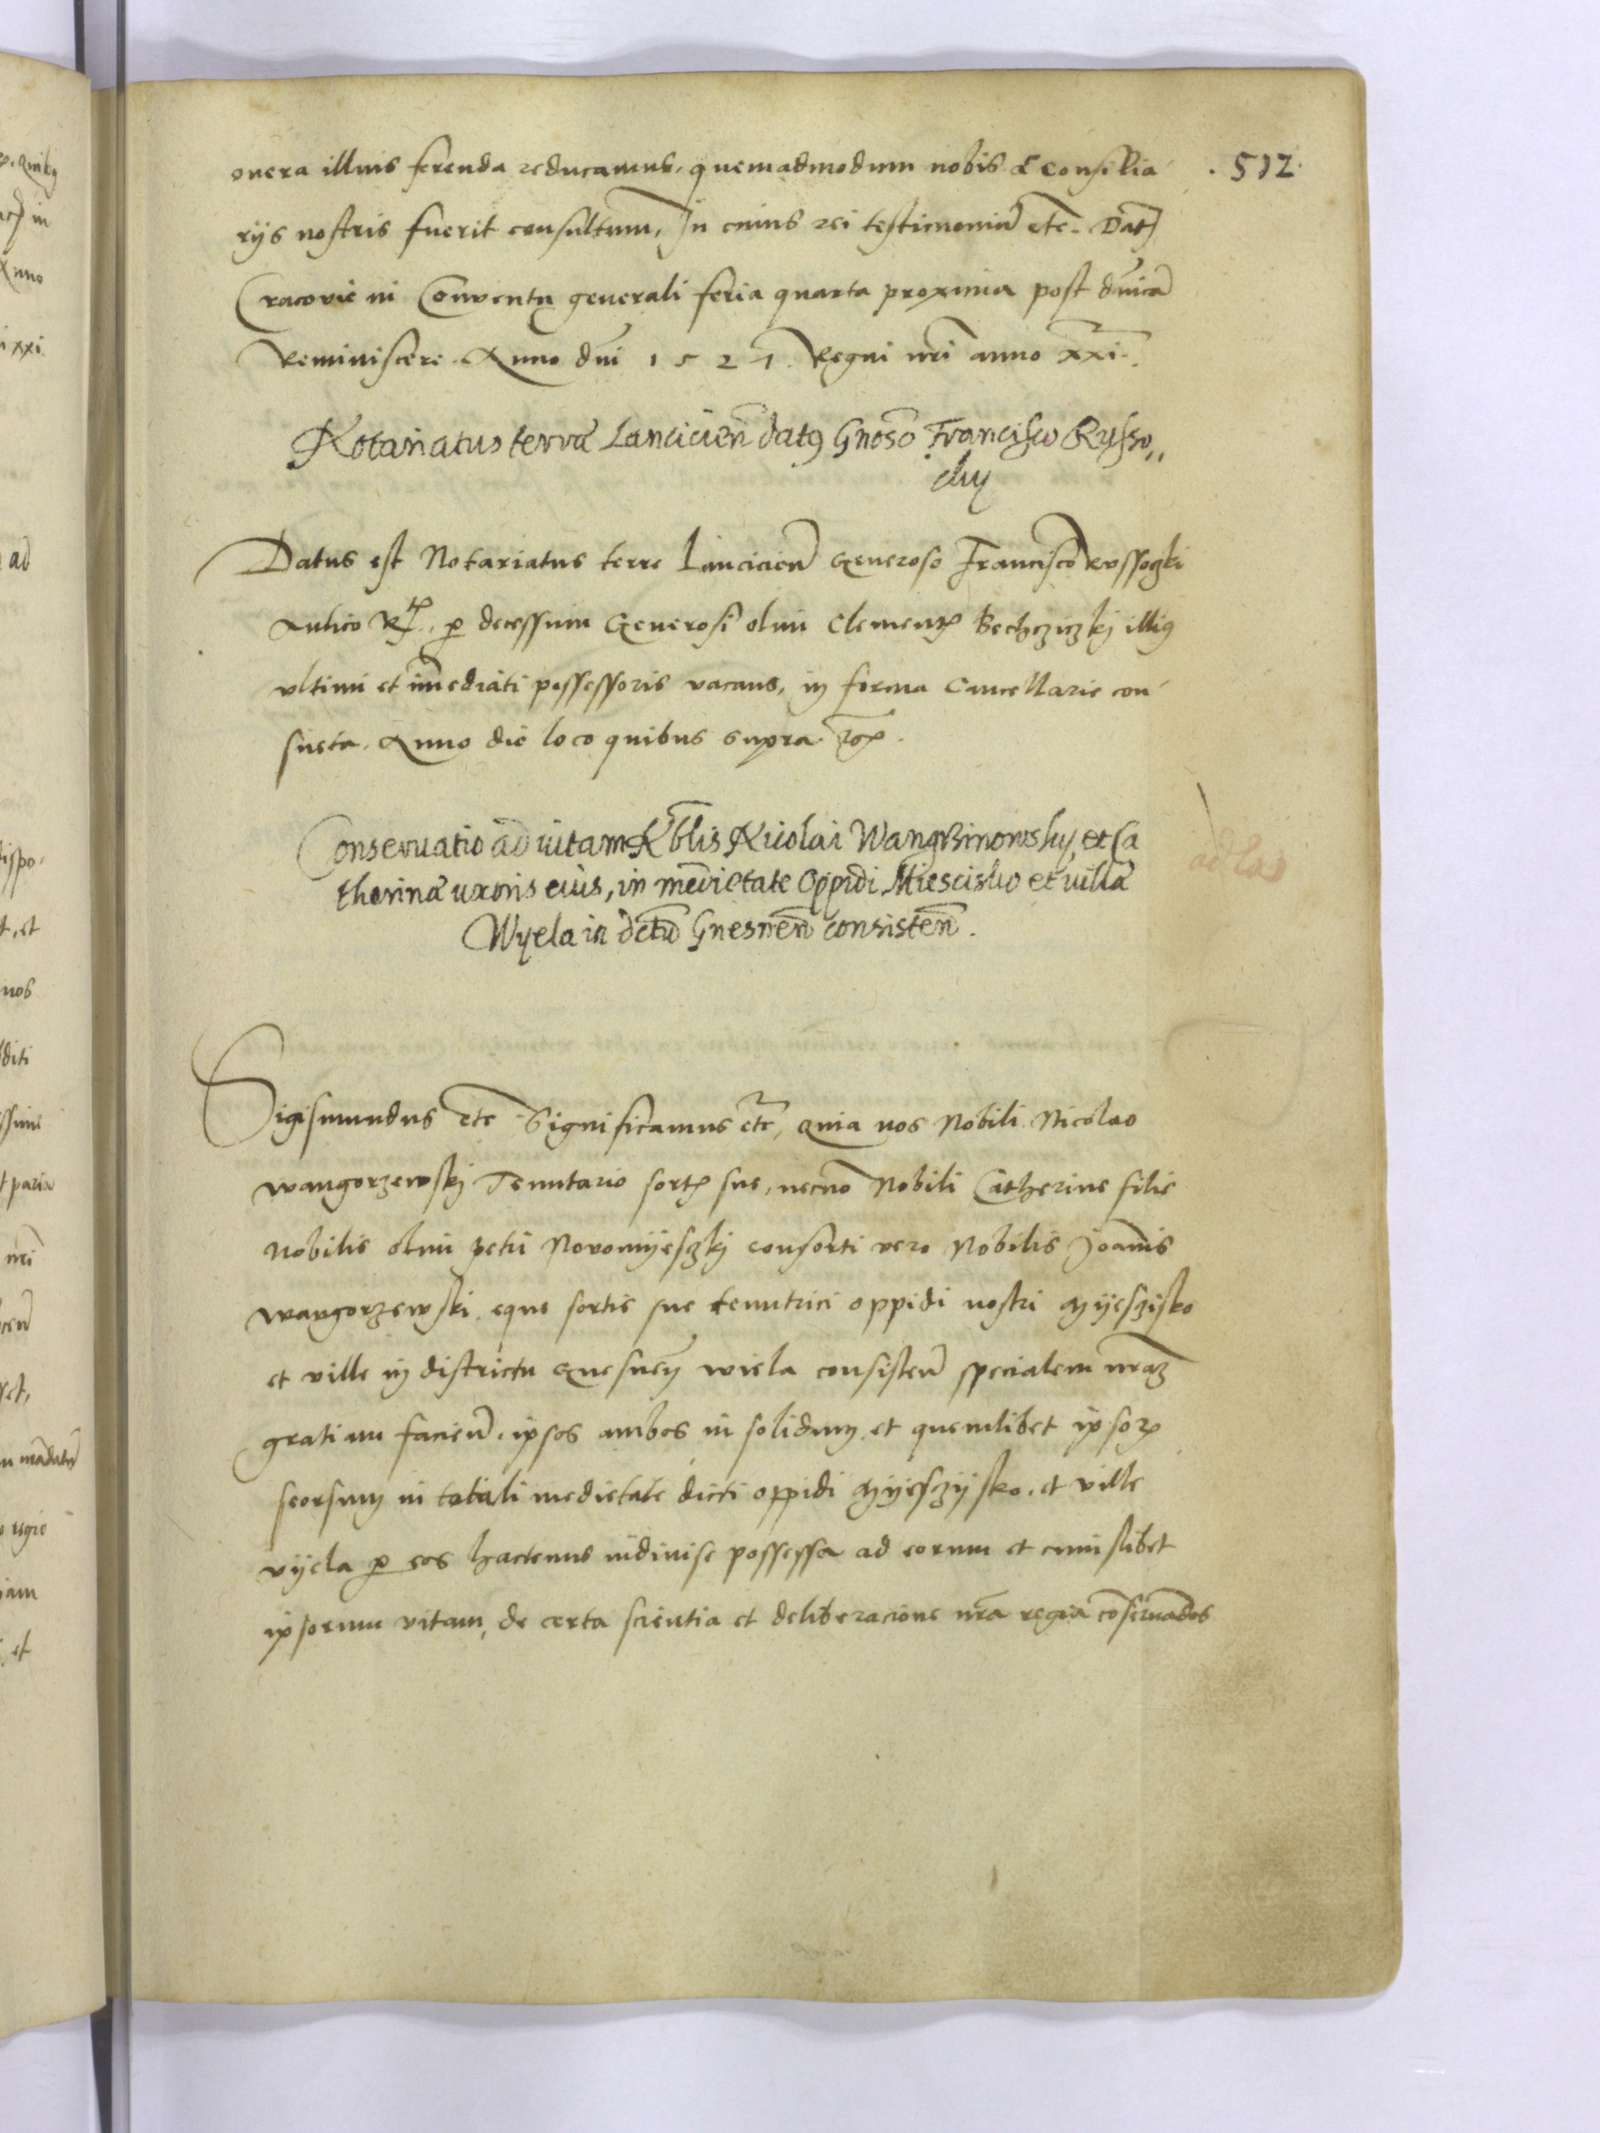 . 512.
onera illius ferenda reducamus, quemadmodum nobis & Consilia
rijs nostris fuerit consultum, In cuius rei testimoniũ etc. Dat
Cracovie in Conventu generali feria quarta proxima post dnicã
Reminiscere. Anno dni 1527. Regni nri anno xxi.
Notariatus terræ Lancicien datus Gnoso Francisco Russo,,
cky
Datus est Notariatus terre Lancicien Generoso Francisco Russoczki
Aulico R. p decessum Generosi olim Clementis Bechczizkj illius
vltimi et imediati possessoris vacans, in forma Cancellarie con
sueta. Anno die loco quibus supra.
Conservatio ad vitam Nblis Nicolai Wangrzinowsky, et Ca
therinæ uxoris eius, in medietate Oppidi Miescisko et villæ
Wyela in dctu Gnesnen consisten.
Sigismundus etc Significamus etc, quia nos Nobili Nicolao
wangorzewskj Tenutario sortis sue, necno Nobili Catherine filie
Nobilis olim petri Novomyeszkj consorti vero Nobilis Joannis
wangorzewski, eque sortis sue tenutrici oppidi nostri Myesczisko
et ville in districtu Gnesnen wiela consisten specialem nram
gratiam facien, ipsos ambos in solidum et quemlibet ipsorum
seorsum in totali medietate dicti oppidi Myesczysko, et ville
vyela p eos hactenus indivise possessa ad eorum et cuiuslibet
ipsorum vitam, de certa scientia et deliberacione nra regia conservandos